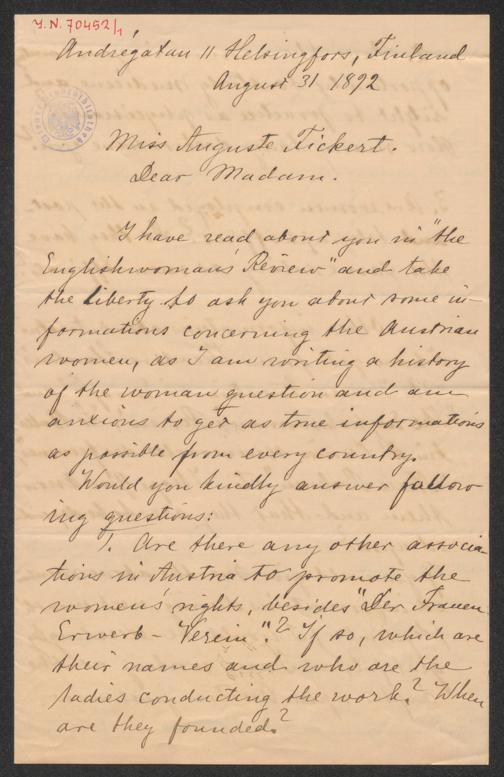 J. N. 70452/1
Andrégatan 11 Helsingfors, Finland
August 31 1892
Miss Auguste Fickert.
Dear Madam.
I have read about you in "the
Englishwoman's Review" and take
the liberty to ask you about some in-
formations concerning the Austrian
women, as I am writing a history
of the woman question and am
anxious to get as true informations
as possible from every country.
Would you kindly answer follow
ing questions:
1. Are there any other associa-
tions in Austria to promote the
women's rights, besides "Der Frauen
Erwerb-Verein"? If so, which are
their names and who are the
ladies conducting the work? When
are they founded?